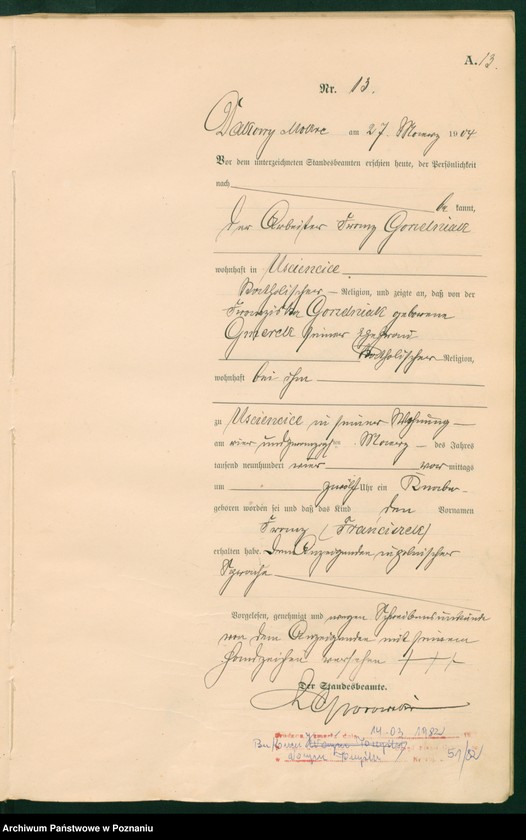 A. 13.
Nr. 13.
Dakowy Mokre am 27. Maerz 1904
Vor dem unterzeichneten Standesbeamten erschien heute, der Persönlichkeit
nach
be kannt,
der Arbeiter Franz Gondniak
wohnhaft in Usciencice
katholischer Religion, und zeigte an, daß von der
Franziska Gondniak geborene
Gmerek seiner Ehefrau
katholischer Religion,
wohnhaft bei ihm
zu Usciencice in seiner Wohnung
am vier und zwanzigsten Maerz des Jahres
tausend neunhundert vier vor mittags
um zwölf Uhr ein Knabe
geboren worden sei und daß das Kind den Vornamen
Franz (Franciszek)
erhalten habe. Dem Anzeigenden in polnischer
Sprache
Vorgelesen, genehmigt und wegen Schreibensunkunde
von dem Anzeigenden mit seinem
Handzeichen versehen +++
Der Standesbeamte.
14.03 1982
51/82
Archiwum Państwowe w Poznaniu